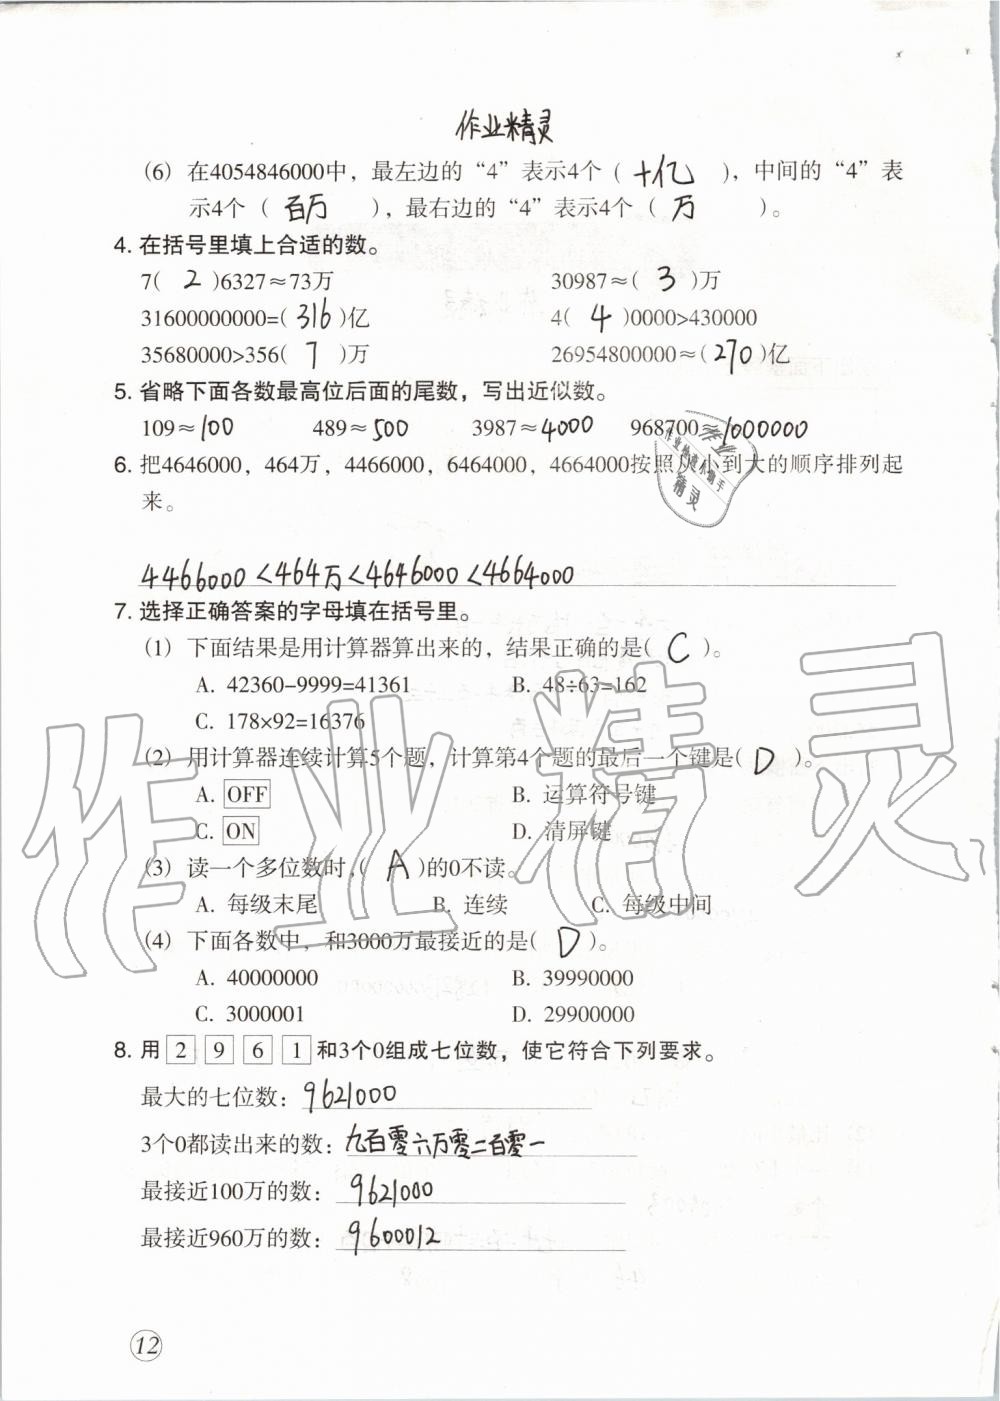 作业精灵
(6) 在4054846000中，最左边的“4”表示4个（ 十亿 ），中间的“4”表
示4个（ 百万 ），最右边的“4”表示4个（ 万 ）。
4. 在括号里填上合适的数。
7( 2 )6327≈73万 30987≈( 3 )万
31600000000=( 316 )亿 4( 4 )0000>430000
35680000>356( 7 )万 26954800000≈( 270 )亿
5. 省略下面各数最高位后面的尾数，写出近似数。
109≈100 489≈500 3987≈4000 968700≈1000000
6. 把4646000，464万，4466000，6464000，4664000按照从小到大的顺序排列起
来。
4466000<464万<4646000<4664000
7. 选择正确答案的字母填在括号里。
(1) 下面结果是用计算器算出来的，结果正确的是( C )。
A. 42360-9999=41361 B. 48÷63=162
C. 178×92=16376
(2) 用计算器连续计算5个题，计算第4个题的最后一个键是( D )。
A. OFF B. 运算符号键
C. ON D. 清屏键
(3) 读一个多位数时,( A )的0不读。
A. 每级末尾 B. 连续 C. 每级中间
(4) 下面各数中，和3000万最接近的是( D )。
A. 40000000 B. 39990000
C. 3000001 D. 29900000
8. 用 2 9 6 1 和3个0组成七位数，使它符合下列要求。
最大的七位数：9621000
3个0都读出来的数：九百零六万零二百零一
最接近100万的数：9621000
最接近960万的数：9600012
12
作业精灵